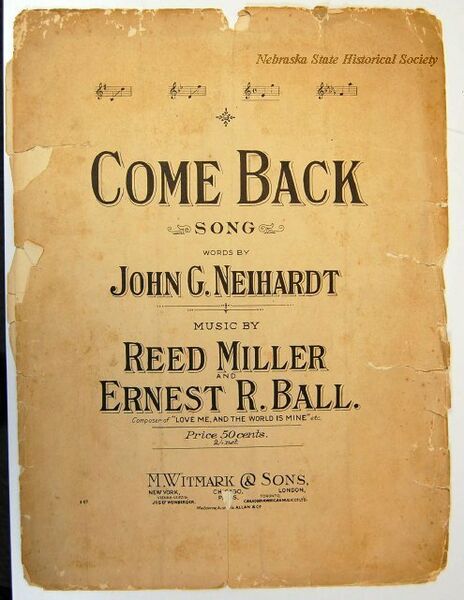 Nebraska State Historical Society
COME BACK
SONG
WORDS BY
JOHN G. NEIHARDT
MUSIC BY
REED MILLER
AND
ERNEST R. BALL.
Composer of "LOVE ME, AND THE WORLD IS MINE" etc.
Price 50 cents.
2/- net
M. WITMARK & SONS,
NEW YORK, CHICAGO, LONDON,
JOSEF WEINBERGER. PARIS. TORONTO,
ALLAN & CO